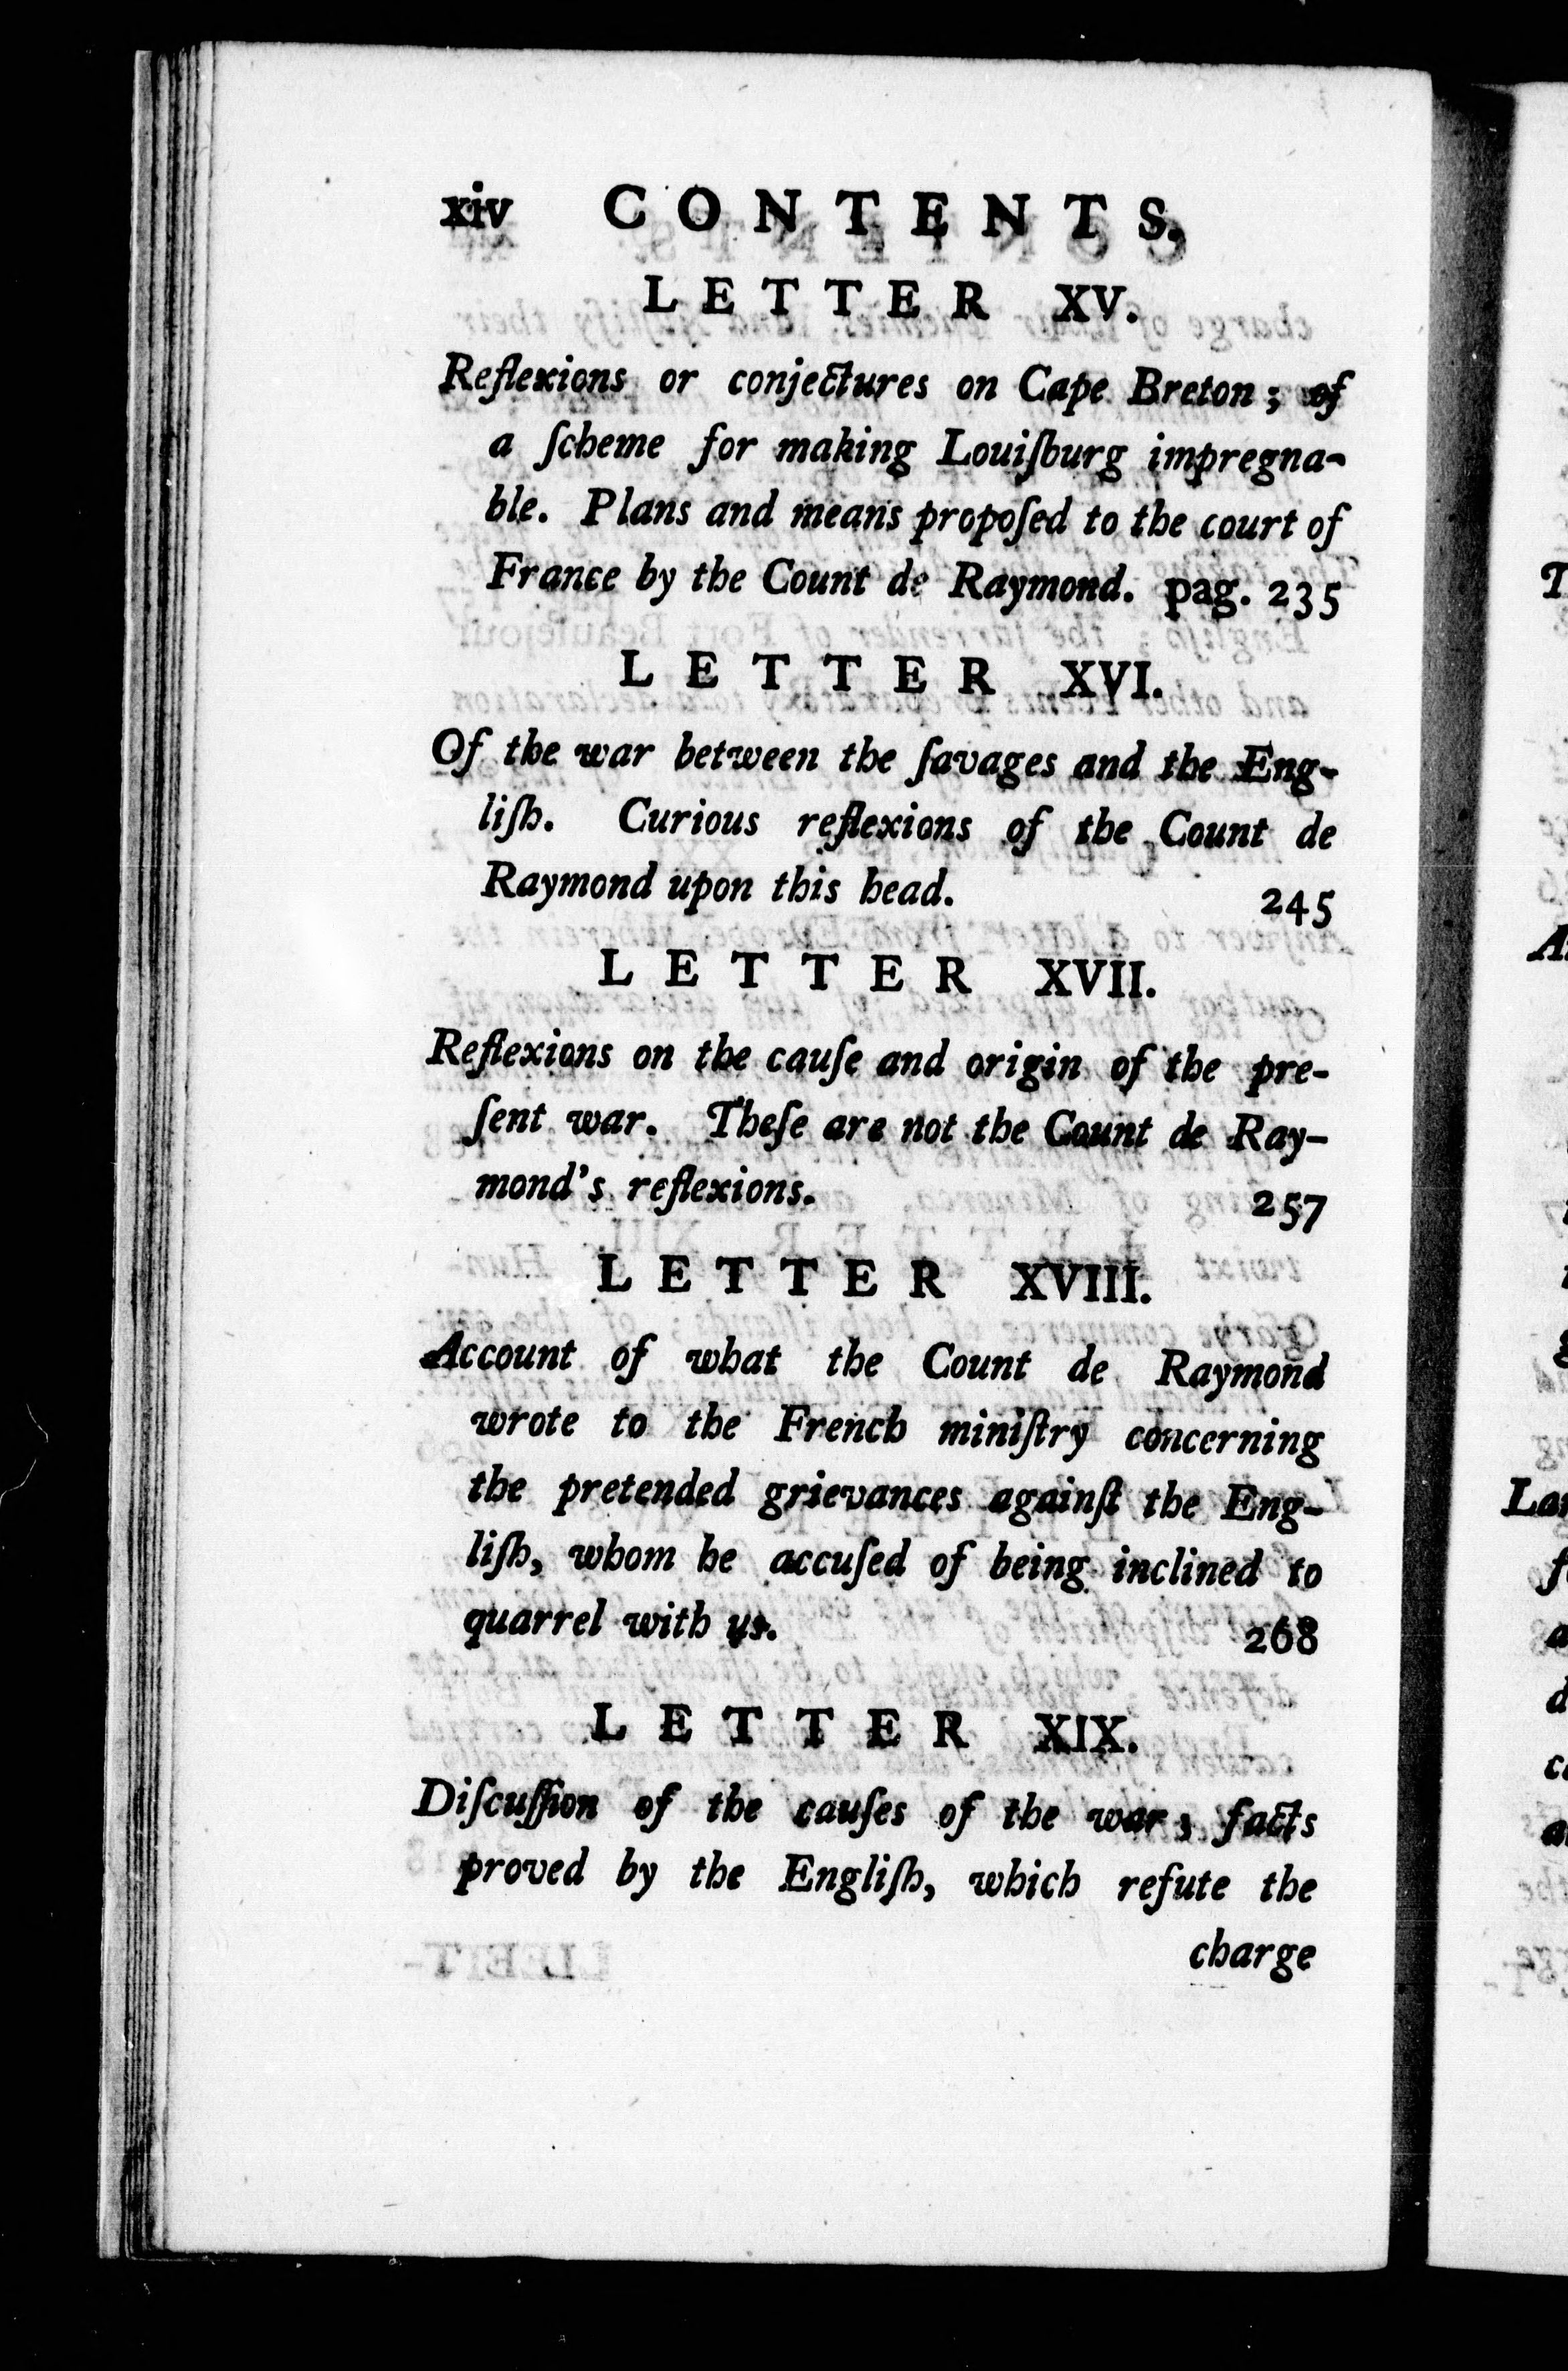 xiv CONTENTS.
LETTER XV.
Reflexions or conjectures on Cape Breton; of
a ſcheme for making Louiſburg impregna-
ble. Plans and means propoſed to the court of
France by the Count de Raymond. pag. 235
LETTER XVI.
Of the war between the ſavages and the Eng-
liſh. Curious reflexions of the Count de
Raymond upon this head. 245
LETTER XVII.
Reflexions on the cauſe and origin of the pre-
ſent war. Theſe are not the Count de Ray-
mond's reflexions. 257
LETTER XVIII.
Account of what the Count de Raymond
wrote to the French miniſtry concerning
the pretended grievances againſt the Eng-
liſh, whom he accuſed of being inclined to
quarrel with us. 268
LETTER XIX.
Diſcuſſion of the cauſes of the war; facts
proved by the Engliſh, which refute the
charge